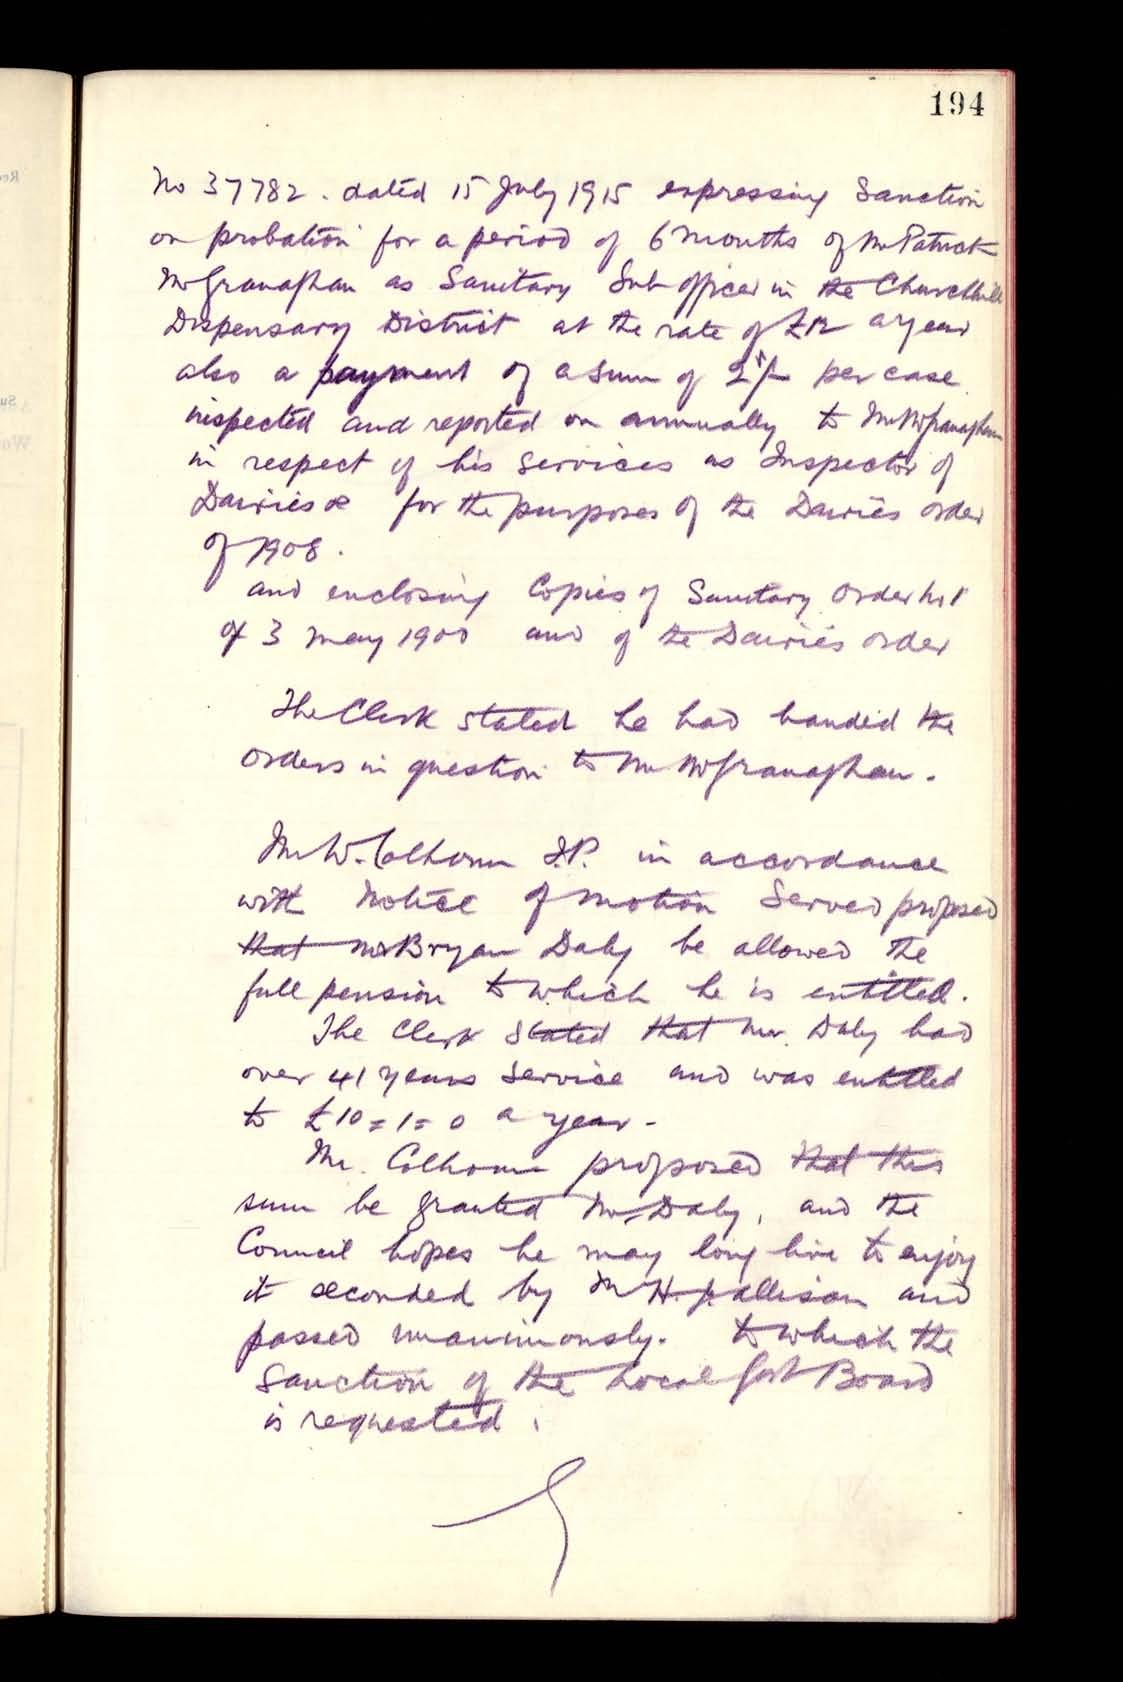 194
No 37782. dated 15 July 1915 expressing Sanction
on probation for a period of 6 months of Mr Patrick
McGranaghan as Sanitary Sub officer in the Churchhill
Dispensary District at the rate of £12 a year
also a payment of a sum of 2/- per case
inspected and reported on annually to Mr McGranaghan
in respect of his services as Inspector of
Dairies &c for the purposes of the Dairies order
of 1908.
and enclosing Copies of Sanitary Order No 1
of 3 May 1900 and of the Dairies order
The Clerk stated he had handed the
orders in question to Mr McGranaghan.
Mr W. Colhoun J.P. in accordance
with Notice of motion Served proposed
that Mr Bryan Daly be allowed the
full pension to which he is entitled.
The Clerk stated that Mr. Daly had
over 41 years service and was entitled
to £10=1=0 a year-
Mr. Colhoun proposed that this
sum be granted Mr Daly, and the
Council hopes he may long live to enjoy
it seconded by Mr H. J. Allison and
passed unanimously. to which the
Sanction of the Local Govt Board
is requested.